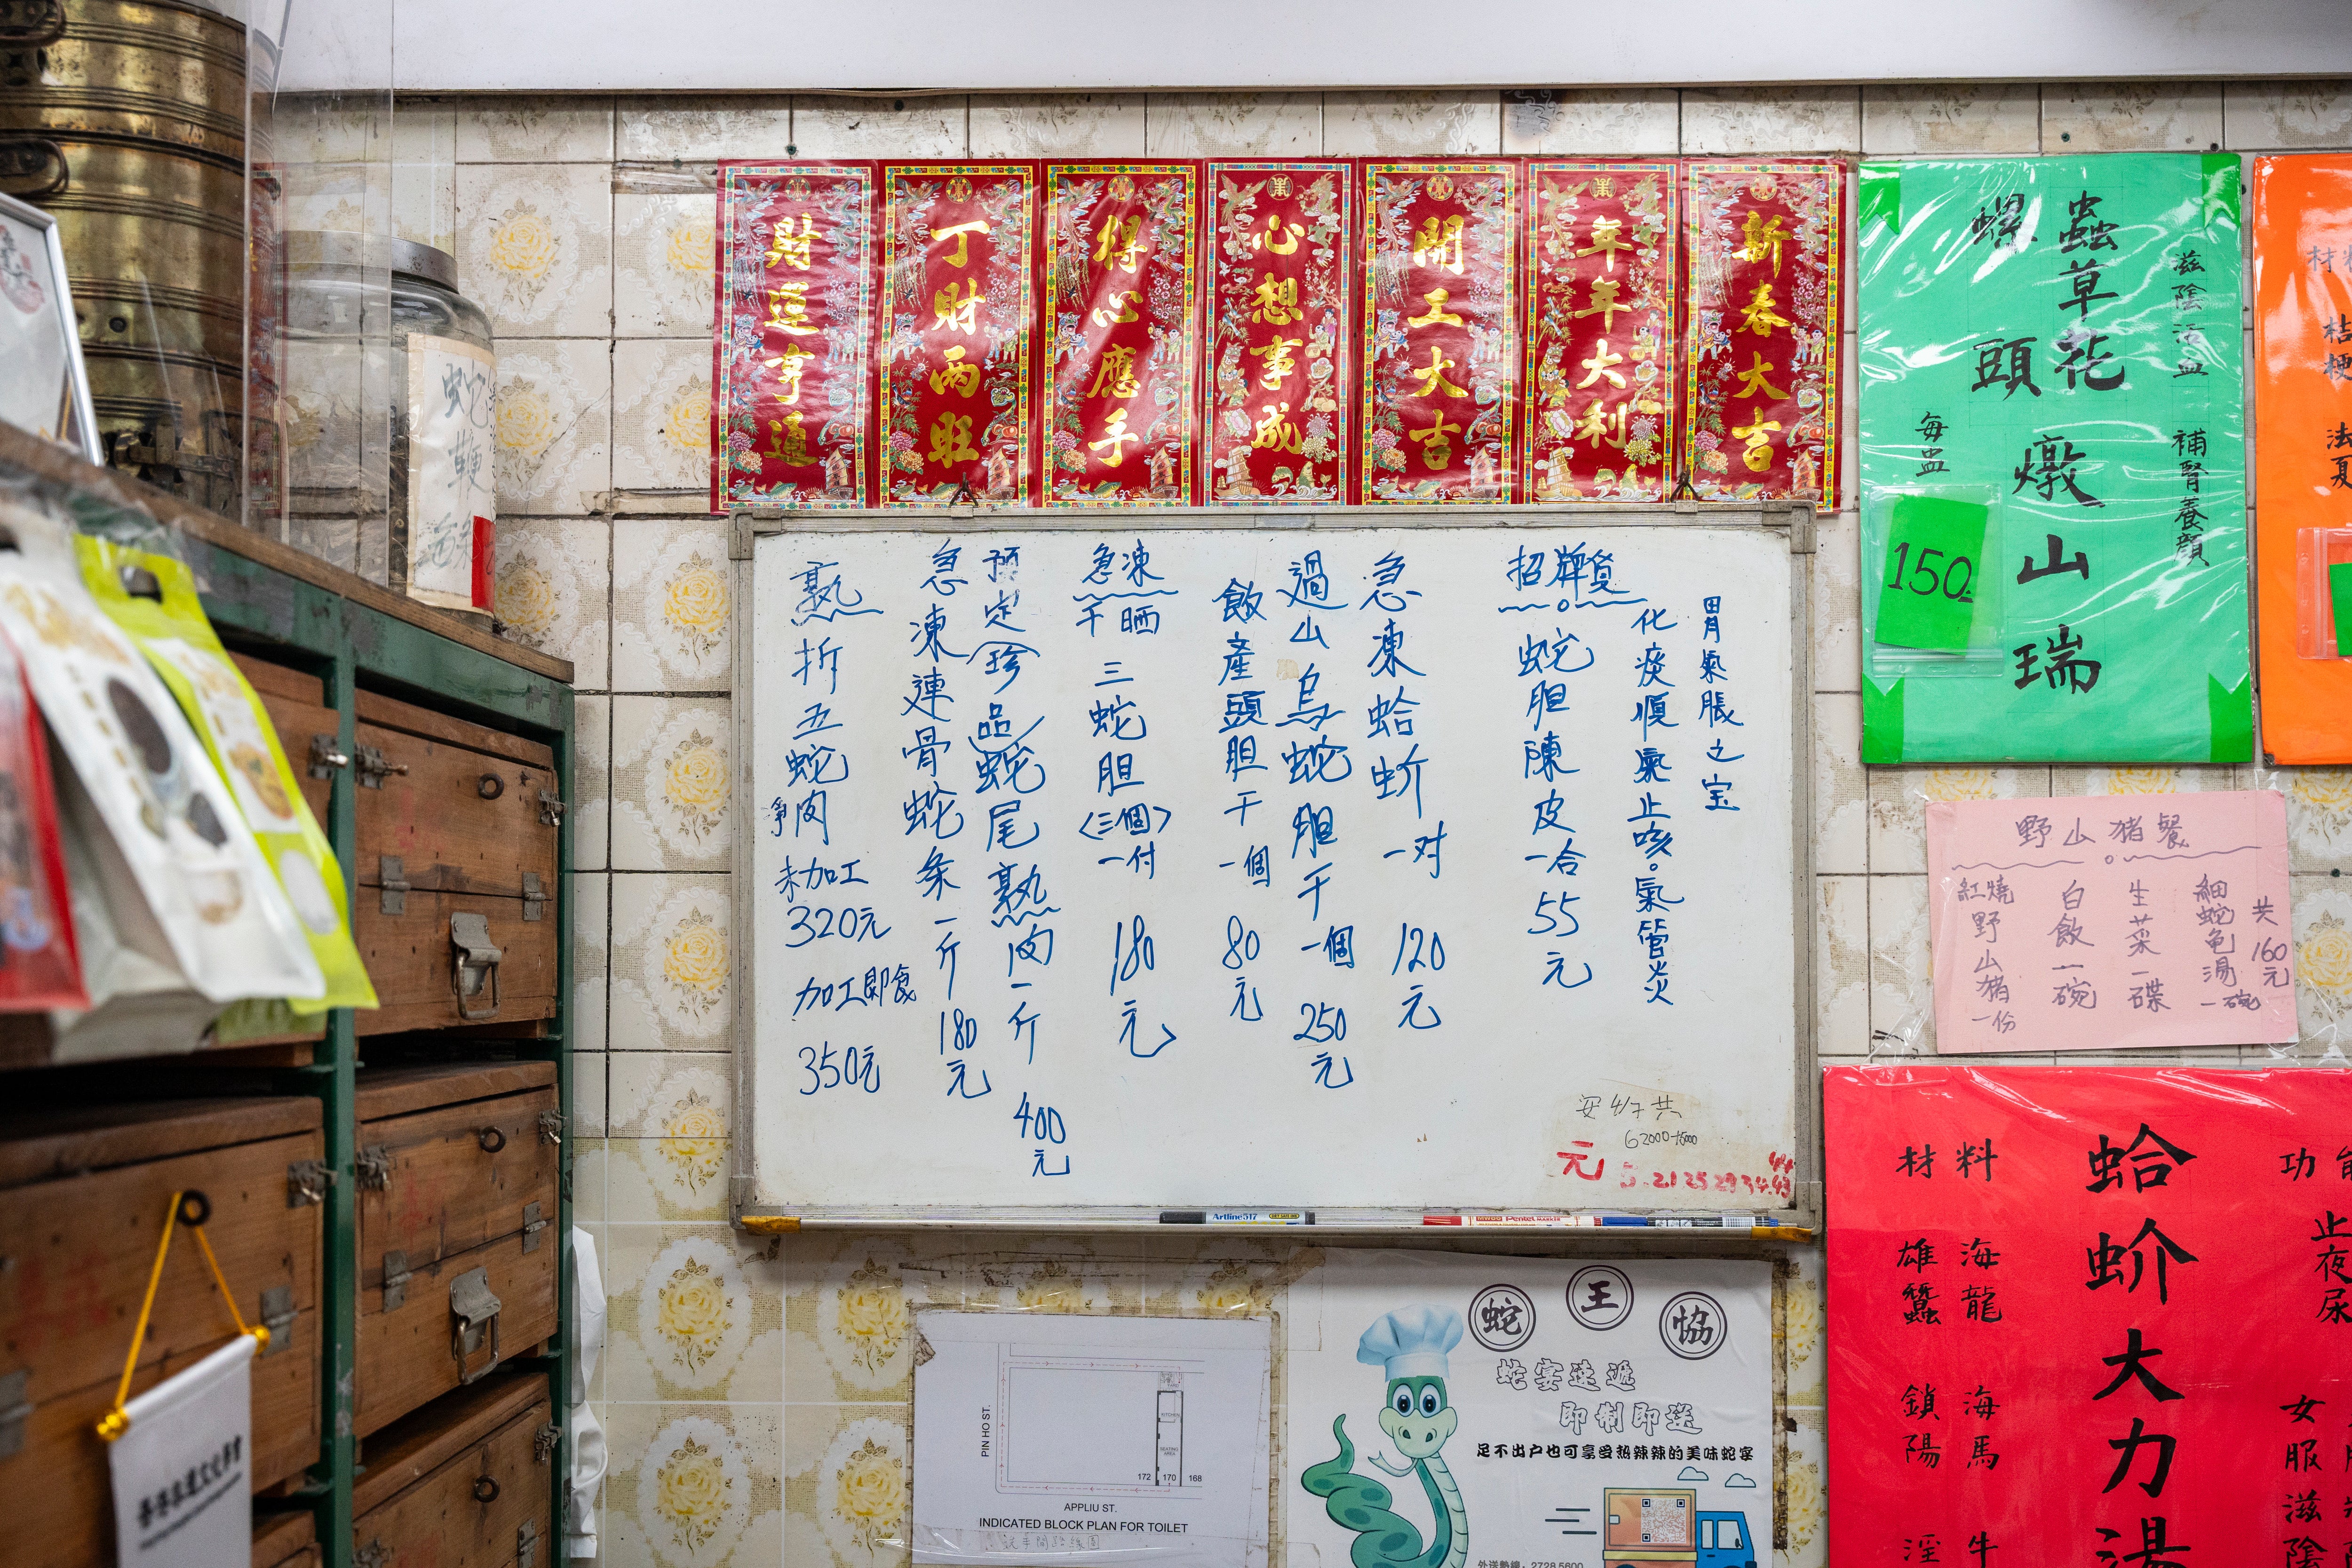 新春大吉
年年大利
開工大吉
心想事成
得心應手
丁財兩旺
財運亨通
招牌貨
胃氣脹之宝
化痰順氣止咳。氣管炎
蛇胆陳皮一合55元
急凍蛤蚧一对120元
過山烏蛇胆干一個250元
飲產頭胆干一個80元
急凍
干晒
三蛇胆
〈三個〉
一付
180元
預定珍品蛇尾熟肉一斤400元
急凍連骨蛇条一斤180元
熟
折五蛇
淨肉
未加工
320元
加工即食
350元
元
Artline 517
Pentel
滋陰活血 補腎養顏
蟲草花
螺頭
燉山瑞
每盅
150
桔梗
法夏
野山猪餐
共160元
細蛇龟湯一碗
生菜一碟
白飯一碗
紅燒野山猪一份
蛤蚧大力湯
材料
海龍
海馬
雄蠶
鎖陽
淫
牛
功
止夜尿
女服滋陰
蛇鞭
PIN HO ST.
KITCHEN
SEATING AREA
172 170 168
APPLIU ST.
INDICATED BLOCK PLAN FOR TOILET
蛇王協
蛇宴速遞
即制即送
足不出户也可享受热辣辣的美味蛇宴
外送熱線: 2728 5600